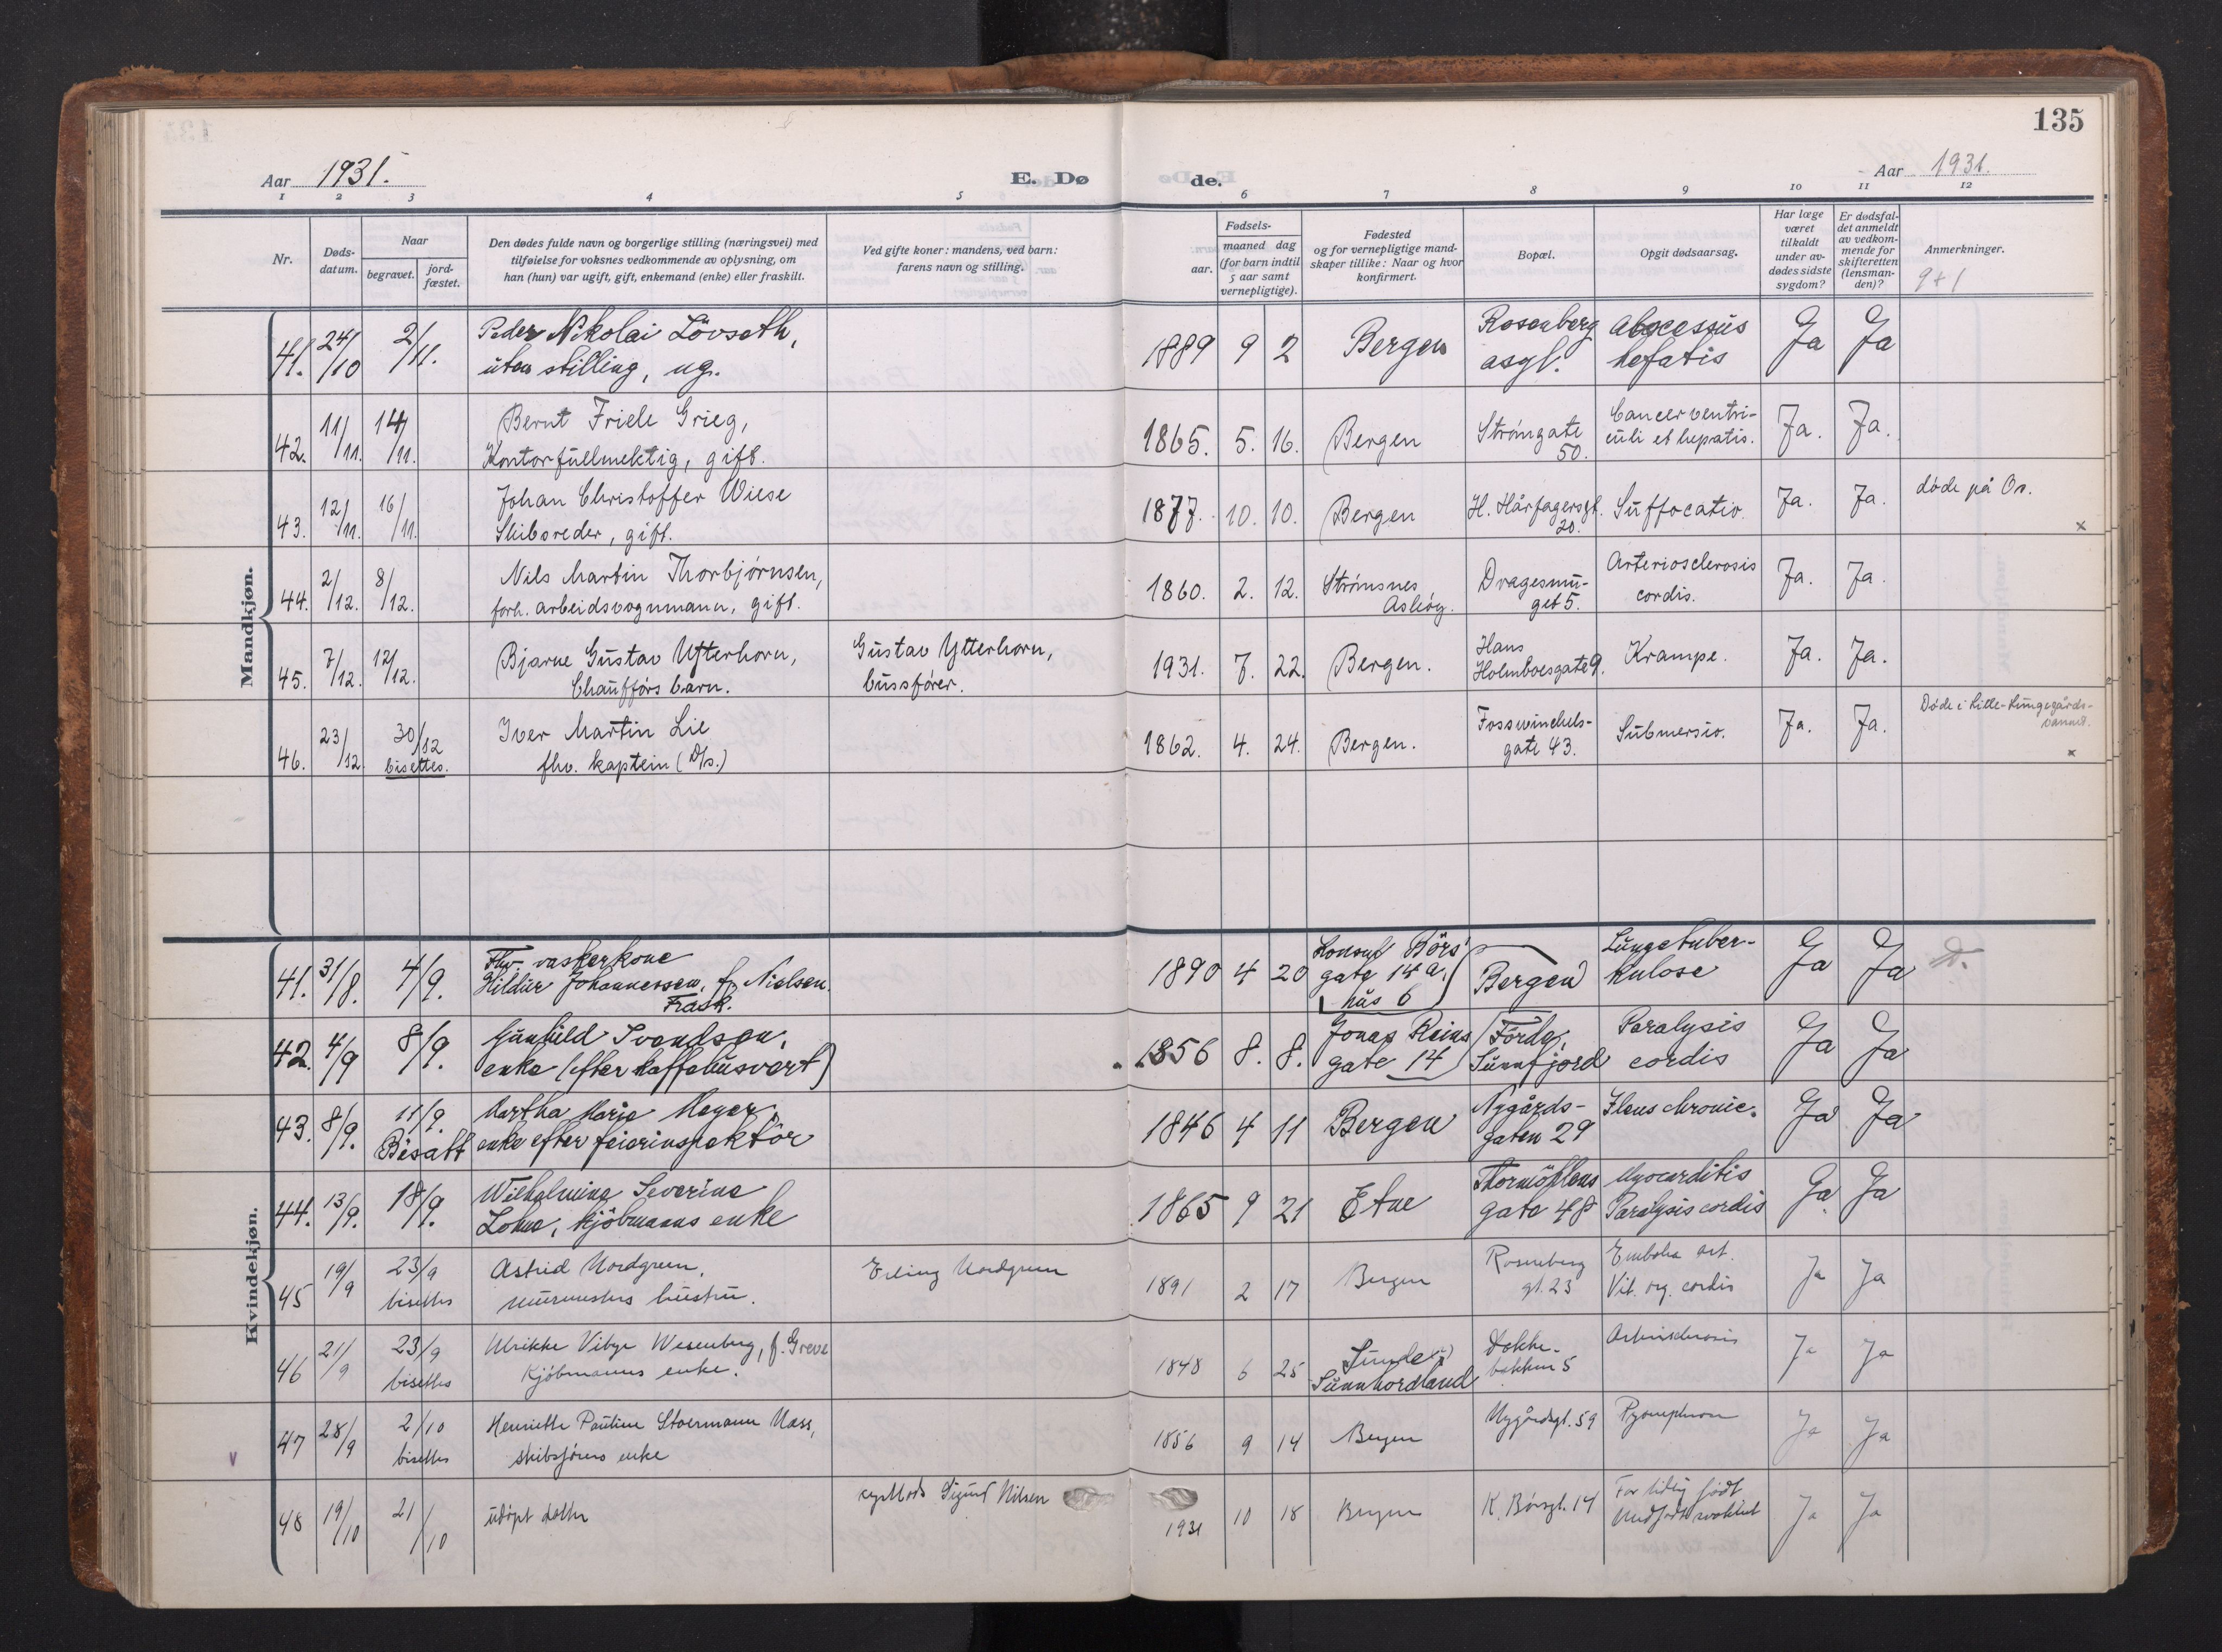 135
Aar 1931. E. Dø de. Aar 1931.
1 2 3 4 5 6 7 8 9 10 11 12
Nr.
Døds-
datum.
Naar
begravet.
jord-
fæstet.
Den dødes fulde navn og borgerlige stilling (næringsvei) med
tilføielse for voksnes vedkommende av oplysning, om
han (hun) var ugift, gift, enkemand (enke) eller fraskilt.
Ved gifte koner: mandens, ved barn:
farens navn og stilling.
Fødsels-
aar.
maaned dag
(for barn indtil
5 aar samt
vernepligtige).
Fødested
og for vernepligtige mand-
skaper tillike: Naar og hvor
konfirmert.
Bopæl.
Opgit dødsaarsag.
Har læge
været
tilkaldt
under av-
dødes sidste
sygdom?
Er dødsfal-
det anmeldt
av vedkom-
mende for
skifteretten
(lensman-
den)?
Anmerkninger.
9+1
Mandkjøn.
41. 24/10 2/11. Peder Nikolai Lövseth,
uten stilling, ug.
1889 9 2 Bergen
Rosenberg
asyl.
abscessus
hepatis
Ja Ja
42. 11/11. 14/11. Bernt Friele Grieg,
Kontorfullmektig, gift.
1865. 5. 16. Bergen
Strømgate
50.
Cancer ventri-
culi et hepatis.
Ja. Ja.
43. 12/11. 16/11. Johan Christoffer Wiese
Skibsreder, gift.
1877. 10. 10. Bergen
H. Hårfagersgt.
20.
Suffocatio.
Ja. Ja. døde på Os.
x
44. 2/12. 8/12. Nils Martin Thorbjørnsen,
forh. arbeidsvognmann, gift.
1860. 2. 12. Strömsnes
Askøy.
Dragesmu-
get 5.
Arteriosclerosis
cordis.
Ja. Ja.
45. 7/12. 12/12. Bjarne Gustav Ytterhorn,
Chaufførs barn.
Gustav Ytterhorn,
bussfører.
1931. 7. 22. Bergen.
Hans
Holmboesgate 9.
Krampe.
Ja. Ja.
46. 23/12 30/12
bisettes.
Iver Martin Lie
fhv. kaptein (D/s.)
1862. 4. 24. Bergen.
Fosswinckels-
gate 43.
Submersio.
Ja. Ja. Døde i Lille-Lungegårds-
vannet.
x
Kvindekjøn.
41. 31/8. 4/9. Fhv. vaskerkone
Hildur Johannessen, f. Nielsen.
Frask.
1890 4 20 Konsul Börs'
gate 14 a.
hus 6
Bergen
Lungetuber-
kulose
Ja Ja D.
42. 4/9 8/9. Gunhild Svendsen,
enke (efter kaffehusvert)
1856 8. 8. Jonas Reins
gate 14
Förde,
Sunnfjord
Paralysis
cordis
Ja Ja
43. 8/9. 11/9.
Bisatt
Martha Marie Meyer,
enke efter feierinspektör
1846 4 11 Bergen
Nygårds-
gaten 29
Ileus chronic.
Ja Ja
44. 13/9. 18/9. Wilhelmine Severine
Lohne, kjöbmanns enke
1865 9 21 Etne
Thormöhlens
gate 48
Myocarditis
Paralysis cordis
Ja. Ja
45 19/9 23/9
bisettes
Astrid Nordgreen,
murmesters hustru.
Erling Nordgreen
1891 2 17 Bergen
Rosenberg
gt. 23
Emboli art.
Vit. org. cordis
Ja Ja
46 21/9 23/9
bisettes
Ulrikke Vibye Wesenberg, f. Greve
Kjöbmanns enke.
1848 6 25 Sunde (i)
Sunnhordland
Dokke-
bakken 5
Arteriosclerosis
Ja Ja
v
47 28/9 2/10
bisettes
Henriette Pauline Stoermann Næss,
skibsførers enke
1856 9 14 Bergen
Nygårdsgt. 59
Ja Ja
48 19/10 21/10 udöpt datter
Sigurd Nilsen
1931 10 18 Bergen
K. Børsgt. 14
For tidlig födt
Ja Ja